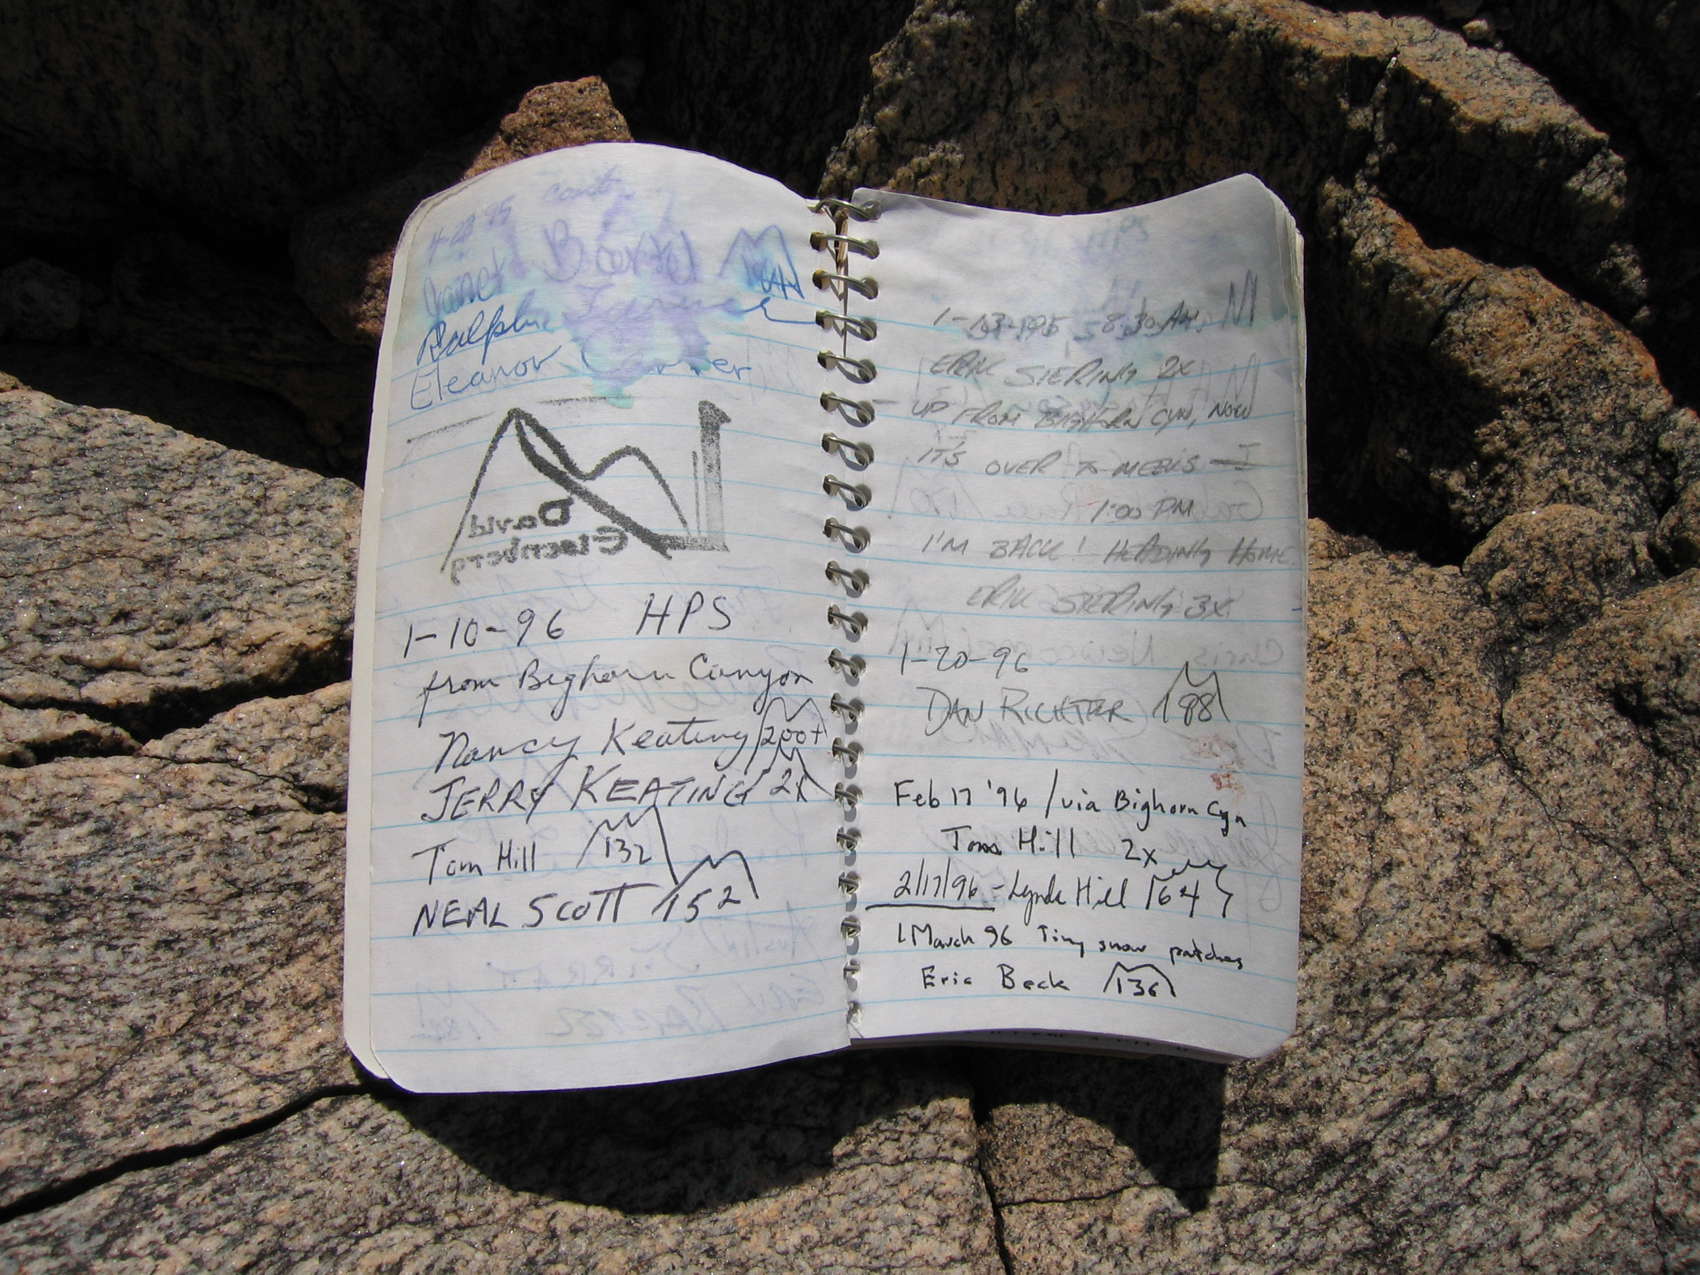 4-28-95
Janet Bartel
Ralph
Eleanor
David
Eisenberg
1-10-96 HPS
from Bighorn Canyon
Nancy Keating 200+
JERRY KEATING 2x
Tom Hill 132
NEAL SCOTT 152
8:30 AM
ERIK SIERING 2X
UP FROM BIGHORN CYN, NOW
IT'S OVER
1:00 PM
I'M BACK! HEADING HOME.
ERIK SIERING 3X
1-20-96
DAN RICHTER 88
Feb 17 '96 / via Bighorn Cyn
Tom Hill 2x
2/17/96 - Lynda Hill 64
1 March 96 Tiny snow patches
Eric Beck 136